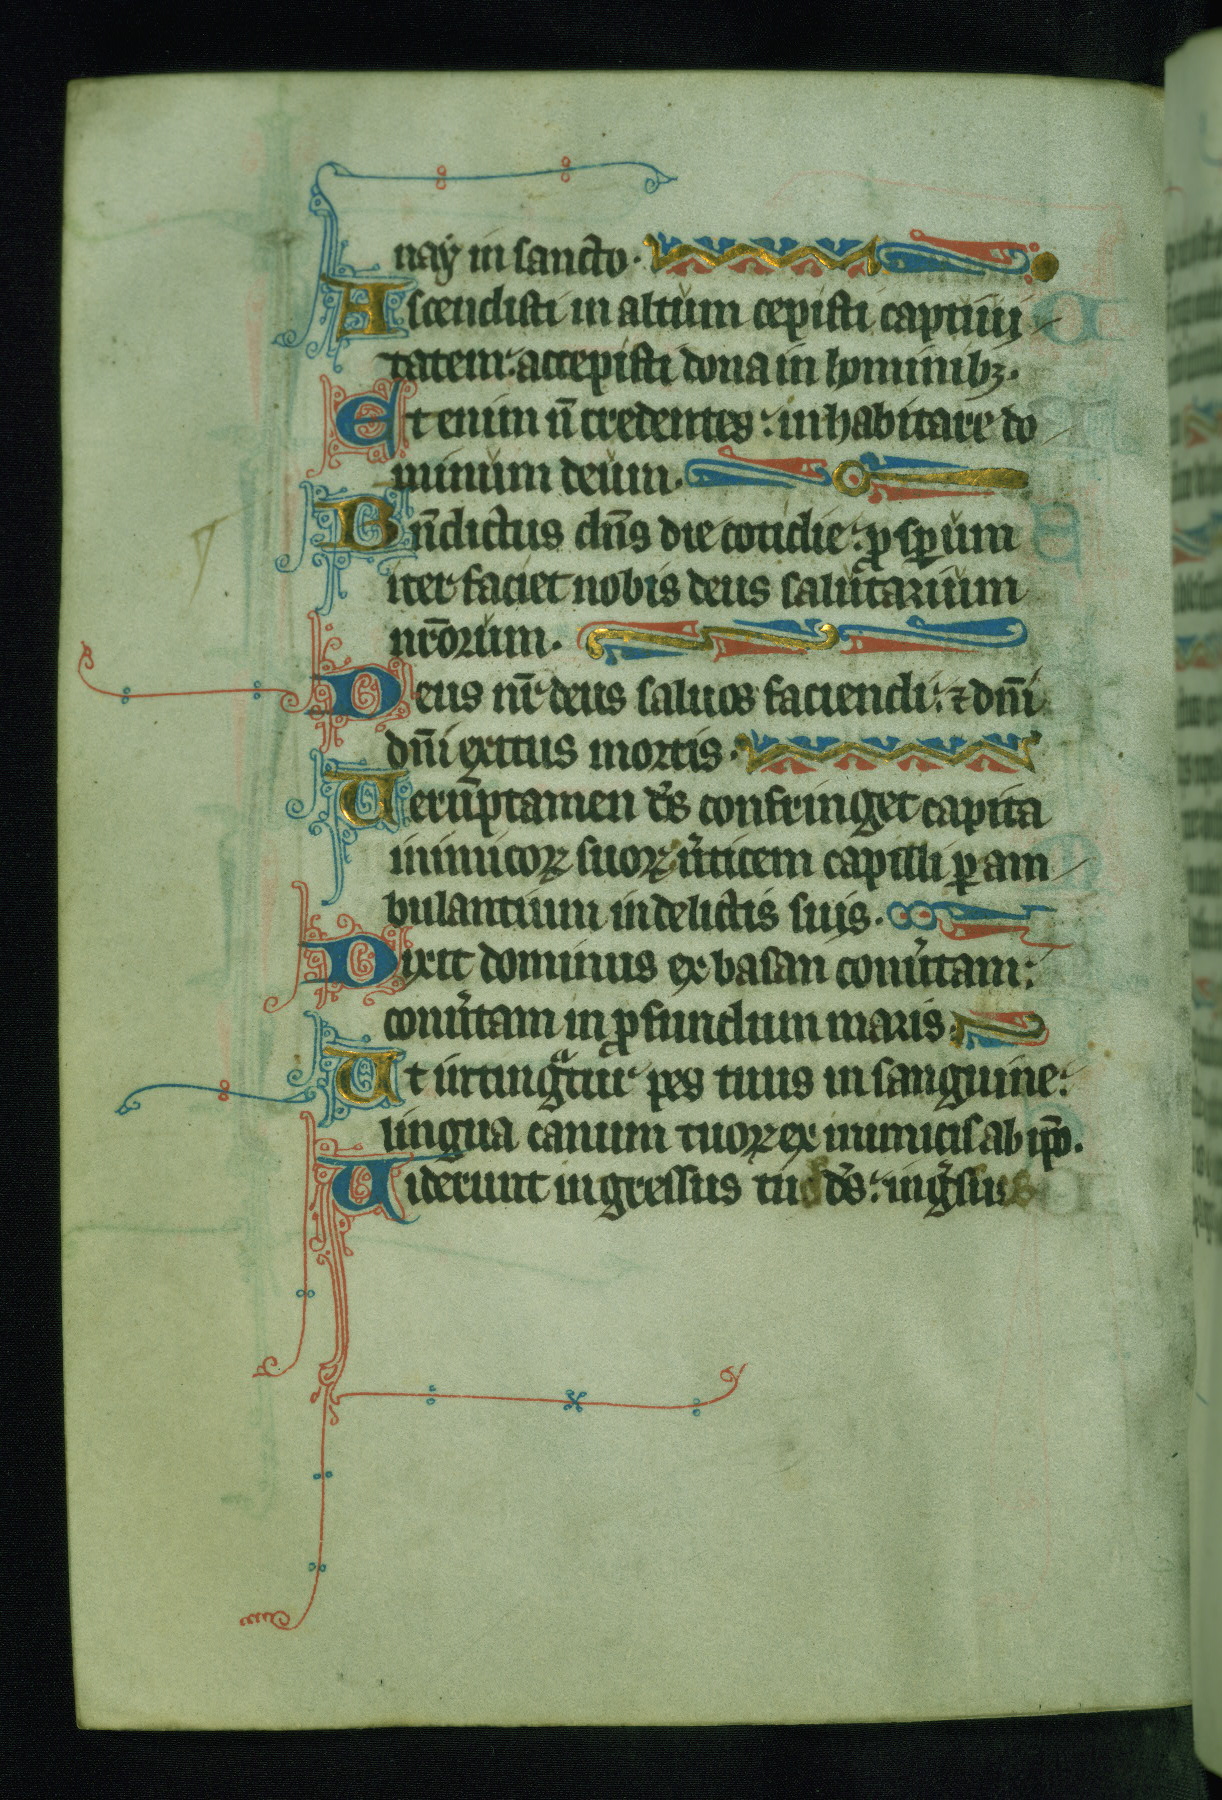 nay in sancto.
Ascendisti in altum cepisti captiui
tatem: accepisti dona in hominibꝫ.
Et enim nō credentes: inhabitare do
minum deum.
Bn̄dictus dn̄s die cotidie: ꝓsꝑum
iter faciet nobis deus salutarium
nr̄orum.
Deus nr̄ deus saluos faciendi: ⁊ dn̄i
dn̄i exitus mortis.
Ueru̅ptamen ds̄ confringet capita
inimicoꝝ suoꝝ u̓ticem capilli ꝑam
bulantium in delictis suis.
Dixit dominus ex basan conu̓tam:
conu̓tam in ꝓfundum maris.
Ut intingᷓtur pes tuus in sanguine:
lingua canum tuoꝝ ex inimicis ab ip̄o.
Uiderunt ingressus tuos ds̄: ingᷓssus